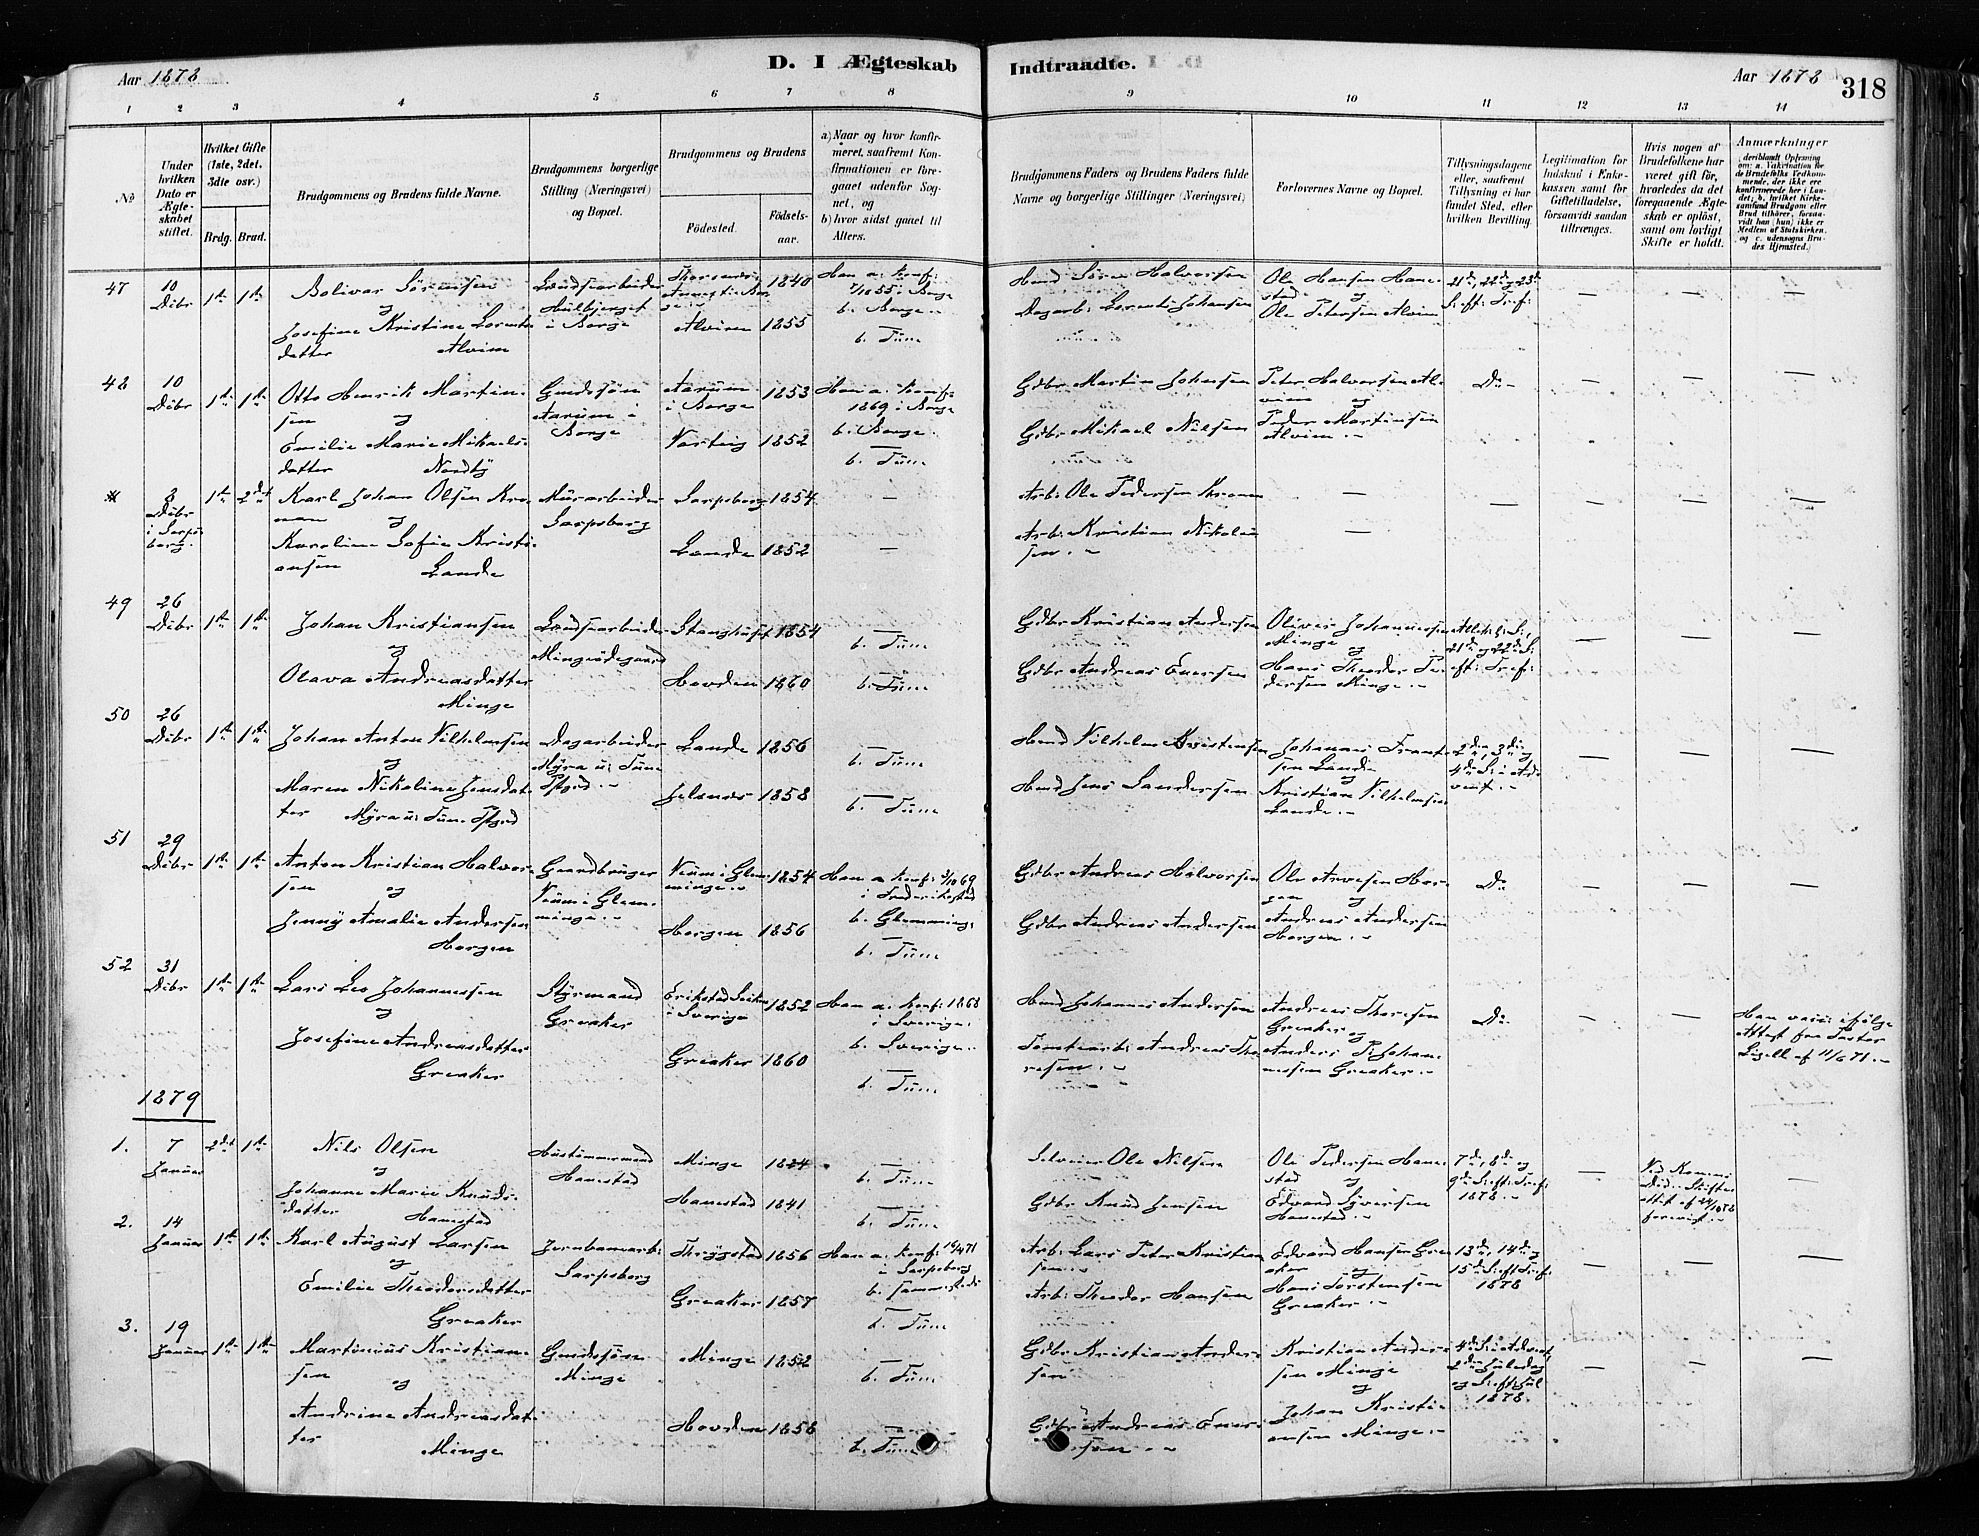 Aar 1878
D. I Ægteskab
Indtraadte.
Aar 1878
318
1 2 3 4 5 6 7 8 9 10 11 12 13 14
No
Under hvilken Dato er Ægteskabet stiftet.
Hvilket Gifte (1ste, 2det, 3die osv.)
Brdg. Brud.
Brudgommens og Brudens fulde Navne.
Brudgommens borgerlige Stilling (Næringsvei) og Bopæl.
Brudgommens og Brudens
Fødested.
Fødselsaar.
a) Naar og hvor konfirmeret, saafremt Konfirmationen er foregaaet udenfor Sognet, og
b) hvor sidst gaaet til Alters.
Brudgommens Faders og Brudens Faders fulde Navne og borgerlige Stillinger (Næringsvei)
Forlovernes Navne og Bopæl.
Tillysningsdagene eller, saafremt Tillysning ei har fundet Sted, efter hvilken Bevilling.
Legitimation for Indskud i Enkekassen samt for Giftetilladelse, forsaavidt saadan tiltrænges.
Hvis nogen af Brudefolkene har været gift før, hvorledes da det foregaaende Ægteskab er opløst, samt om lovligt Skifte er holdt.
Anmærkninger
47 10 Dcbr 1ste 1ste
Bolivar Sörensen
og
Josefine Kristine Lorentsdatter Alvim
Landsarbeider
i Borge
1840
Alvim 1855
Han a. Konf: 7/10 55 i Borge
b. Borge
b. Tune
Hmd Sören Halvorsen
Dagarb: Lorents Johansen
Ole Hansen Hannestad og
Ole Petersen Alvim
21de, 22de og 23de S. eft: Tref:
48 10 Dcbr 1ste 1ste
Otto Henrik Martinsen
og
Emilie Marie Mikaelsdatter Nordby
Gmdssön
Aarum i Borge
Aarum i Borge 1853
Varteig 1852
Han a. Konf: 1869 i Borge
b. Borge
b. Tune
Gdbr Martin Johnsen
Gdbr Mikael Nilsen
Peter Halvorsen Alvim og
Peder Martinsen Alvim
Do
3 Dcbr i Sarpsborg 1ste 2det
Karl Johan Olsen Kronman
og
Karoline Sofie Kristiansen Lande
Murarbeider
Sarpsborg
Sarpsborg 1854
Lande 1852
Arb: Ole Pedersen Kronman
Arb: Kristian Nikolaisen
49 26 Dcbr 1ste 1ste
Johan Kristiansen
og
Olava Andreasdatter Minge
Landsarbeider
Mingeödegaard
1854
Hovden 1860
b. Tune
b. Tune
Gdbr Kristian Andersen
Gdbr Andreas Enersen
Oliver Johannessen Minge og
Hans Theodor Pedersen Minge
21de og 22de S. eft: Tref:
50 26 Dcbr 1ste 1ste
Johan Anton Vilhelmsen
og
Maren Nikoline Jensdatter Myra u. Tune Pstgrd
Dagarbeider
Myra u. Tune Pstgrd
Lande 1856
Jelsnes 1858
b. Tune
b. Tune
Hmd Vilhelm Kristensen
Hmd Jens Sandersen
Johannes Frantsen Lande og
Kristian Vilhelmsen Lande
2den, 3die og 4de S. i Advent
51 29 Dcbr 1ste 1ste
Anton Kristian Halvorsen
og
Jenny Amalie Andersen Horgen
Gaardbruger
Veum i Glemminge
Veum i Glemminge 1854
Horgen 1856
Han a Konf: 3/10 69
i Frederikstad
b. Glemminge
b. Tune
Gdbr Andreas Halvorsen
Gdbr Andreas Andersen
Ole Arvesen Horgen og
Andreas Andersen Horgen
Do
52 31 Dcbr 1ste 1ste
Lars Leo Johannessen
og
Josefine Andreasdatter Greaker
Styrmand
Greaker
i Sverige 1852
Greaker 1860
Han a. Konf: 1868
i Sverige
b. Sverige
b. Tune
Hmd Johannes Andersen
Tomtearb: Andreas Thoresen
Andreas Thoresen Greaker og
Anders P. Johannessen Greaker
Do
Han vacc: ifølge Attest fra Pastor Ligell af 11/6 71
1879
1. 7 Januar 2det 1ste
Nils Olsen
og
Johanne Marie Knudsdatter Hannestad
Hustömmermand
Hannestad
Minge 1824
Hannestad 1841
b. Tune
b. Tune
Selveier Ole Nilsen
Gdbr Knud Jensen
Ole Pedersen Hannestad og
Edvard Syversen Hannestad
7de, 8de og 9de S. eft: Tref: 1878
Ved Konens Död. Skifteattest af 24/10 78 forevist
2. 14 Januar 1ste 1ste
Karl August Larsen
og
Emilie Theodorsdatter Greaker
Jernbanearb:
Sarpsborg
Thrygstad 1856
Greaker 1857
Han a. Konf: 16/4 71
i Sarpsborg
b. sammesteds
b. Tune
Arb: Lars Peter Kristiansen
Arb: Theodor Hansen
Edvard Hansen Greaker og
Hans Torstensen Greaker
13de, 14de og 15de S. eft Tref: 1878
3. 19 Januar 1ste 1ste
Martinius Kristiansen
og
Andrine Andreasdatter Minge
Gmdssön
Minge
Minge 1852
Hovden 1858
b. Tune
b. Tune
Gdbr Kristian Andersen
Gdbr Andreas Enersen
Kristian Andersen Minge
og
Johan Kristiansen Minge
4de S. i Advent
2den Juledag
og S. eft: Jul 1878